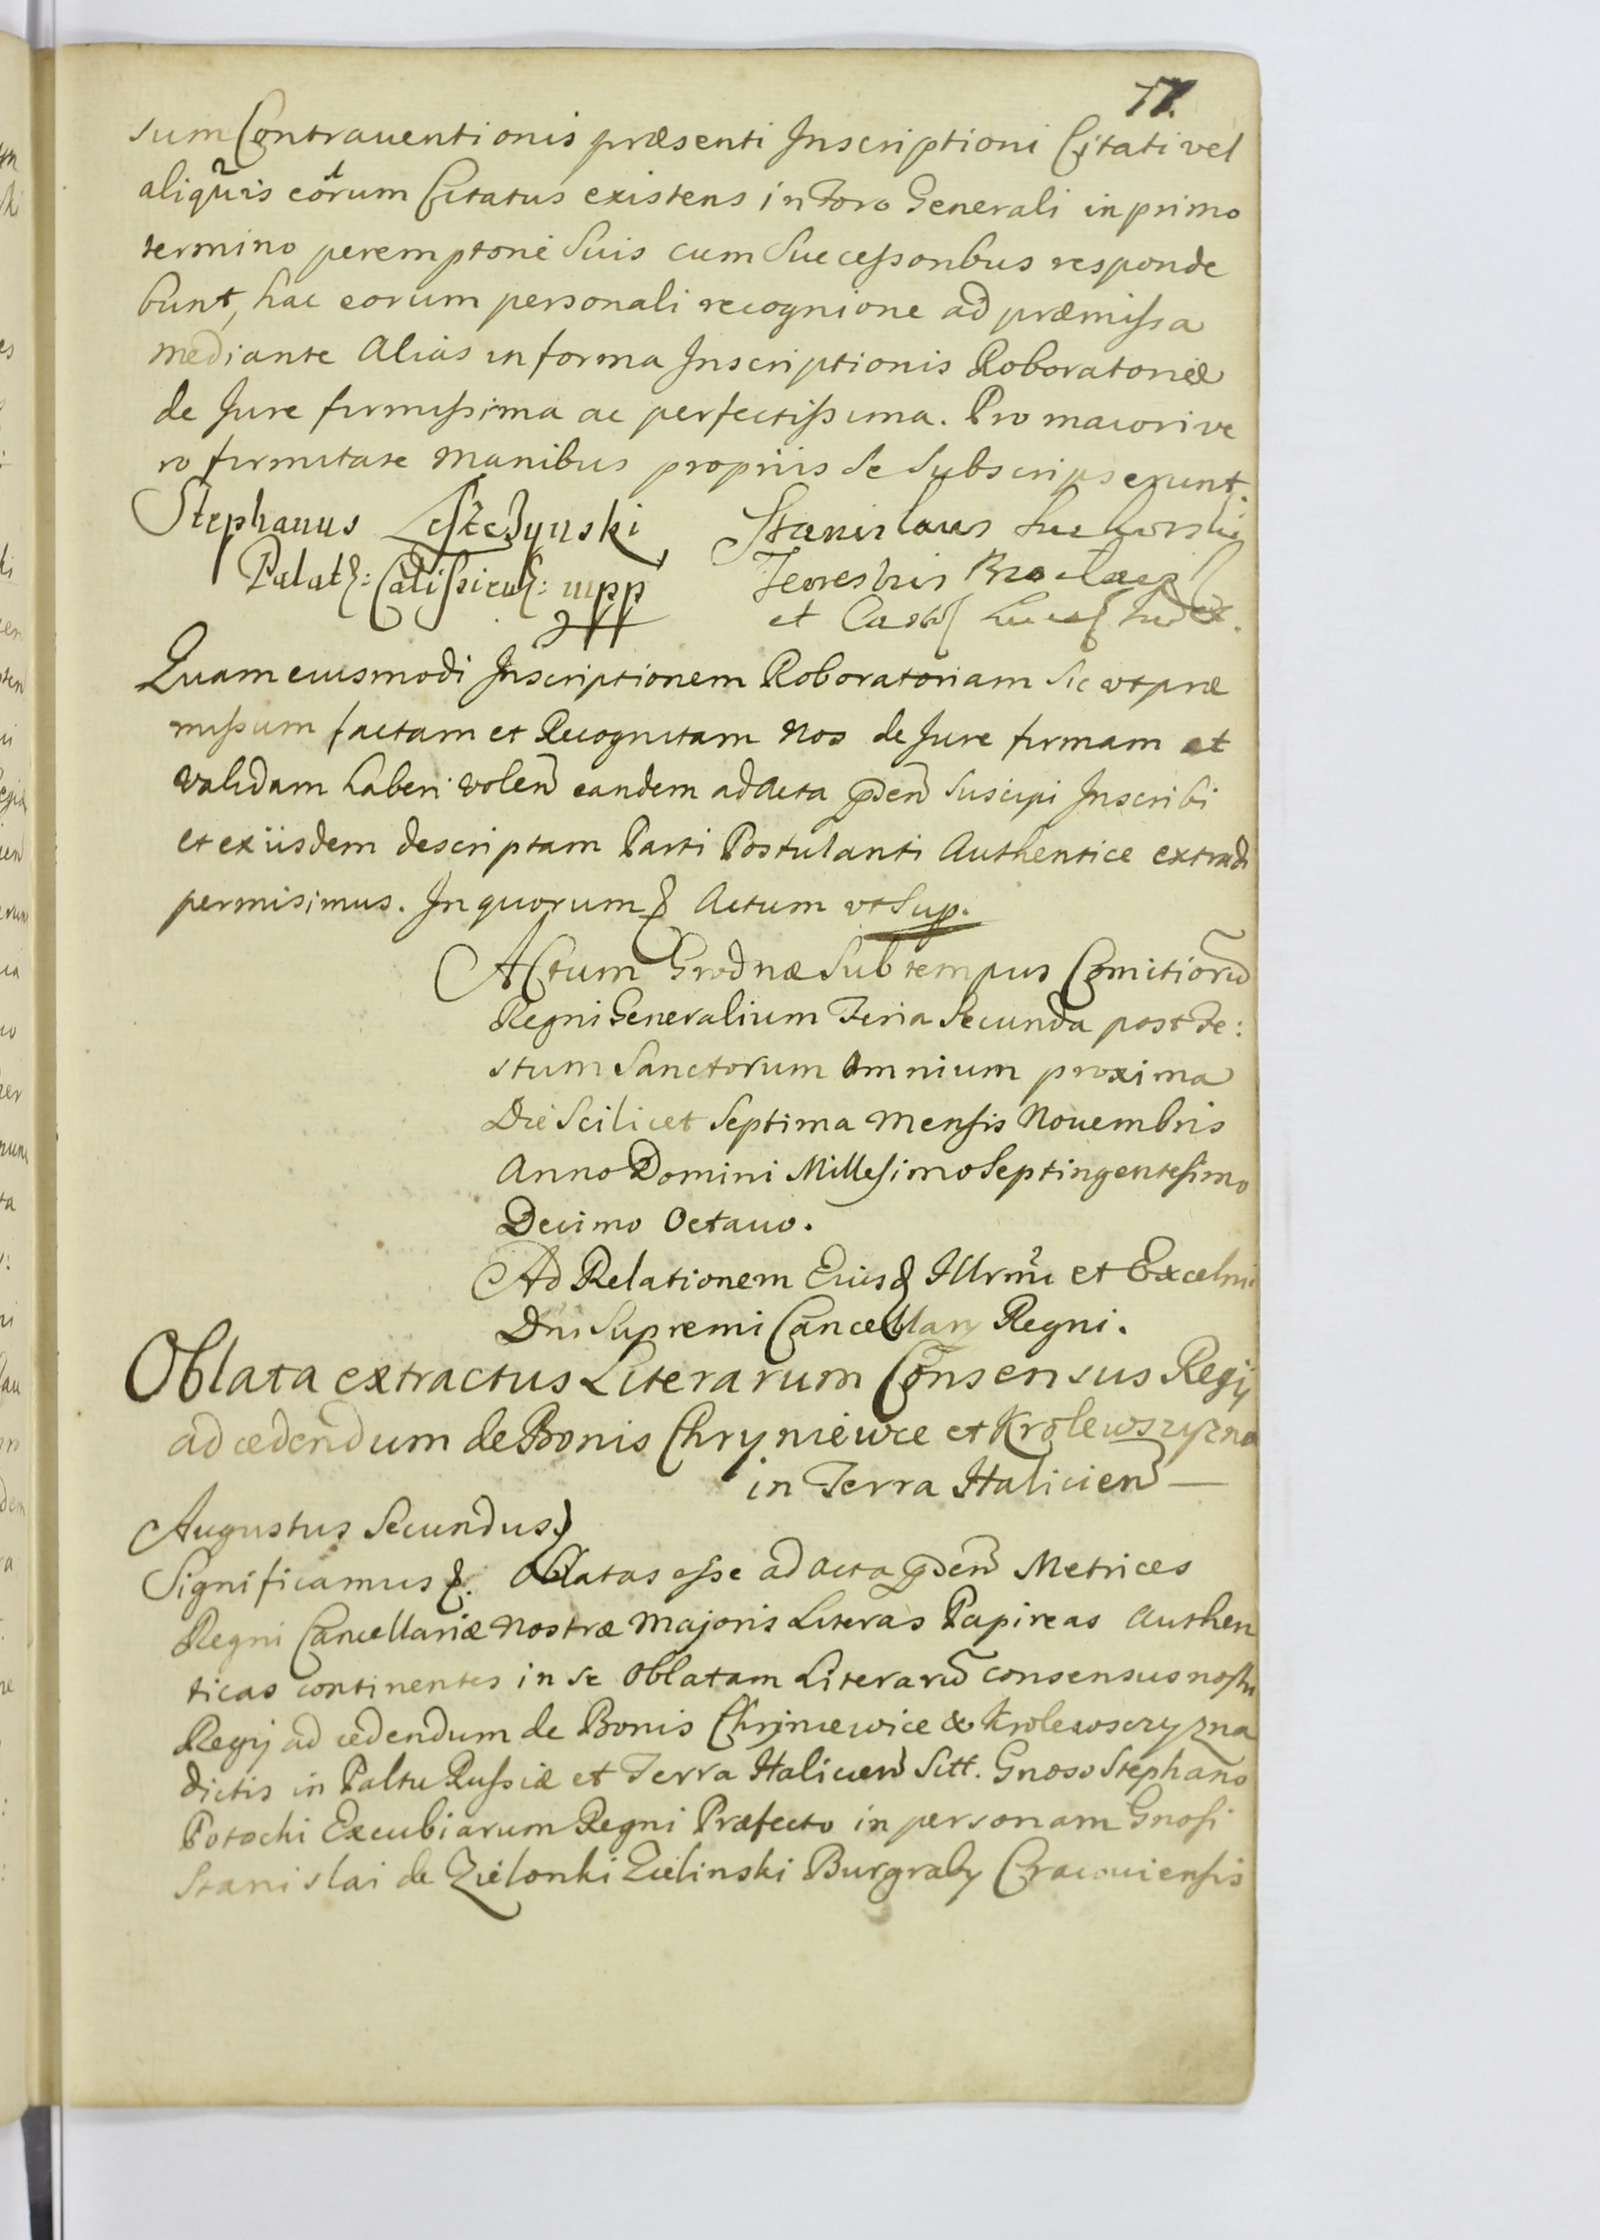 77.
sum Contrauentionis præsenti Inscriptioni Citati vel
aliquis eorum Citatus existens in Foro Generali in primo
termino peremptorié Suis cum Successoribus responde
bunt, hac eorum personali recognione ad præmissa
mediante Alias in forma Inscriptionis Roboratoriæ
de Jure firmissima ac perfectissima. Pro maiori ve
ro firmitate manibus proprüs se Subscripserunt.
Stephanus Leszczynski
Stanislaus
Palat: Calissien: mpp
Terestris
et Cast
Quam eiusmodi Inscriptionem Roboratoriam Sic ut præ
missum factam et Recognitam Nos de Jure firmam et
validam haberi volen eandem ad Acta pñden Suscipi Inscribi
et ex iisdem descriptam Parti Postulanti Authentice extradi
permisimus. In quorum & Actum ut Sup.
Actum Grodnæ Sub tempus Comitiorũ
Regni Generalium Feria Secunda post Fe:
stum Sanctorum Omnium proxima
Die Scilicet Septima Mensis Nouembris
Anno Domini Millesimo Septingentesimo
Decimo Octauo.
Ad Relationem Eiusd Illrmi et Excelmi
Dni Supremi Cancellarÿ Regni.
Oblata extractus Literarum Consensus Regÿ
ad cedendum de Bonis Chryniewce et Krolewszyzna
in Terra Halicien
Augustus Secundus
Significamus &. Oblatas esse ad Acta pñden Metrices
Regni Cancellariæ nostræ Majoris Literas Papireas Authen
ticas continentes in se Oblatam Literarũ consensus nostri
Regÿ ad cedendum de Bonis Chryniewice & Krolewsczyzna
dictis in Paltu Russiæ et Terra Halicien Sitt. Gnoso Stephano
Potochi Excubiarum Regni Præfecto in personam Gnosi
Stanislai de Zielonki Zielinski Burgraby Cracouiensis